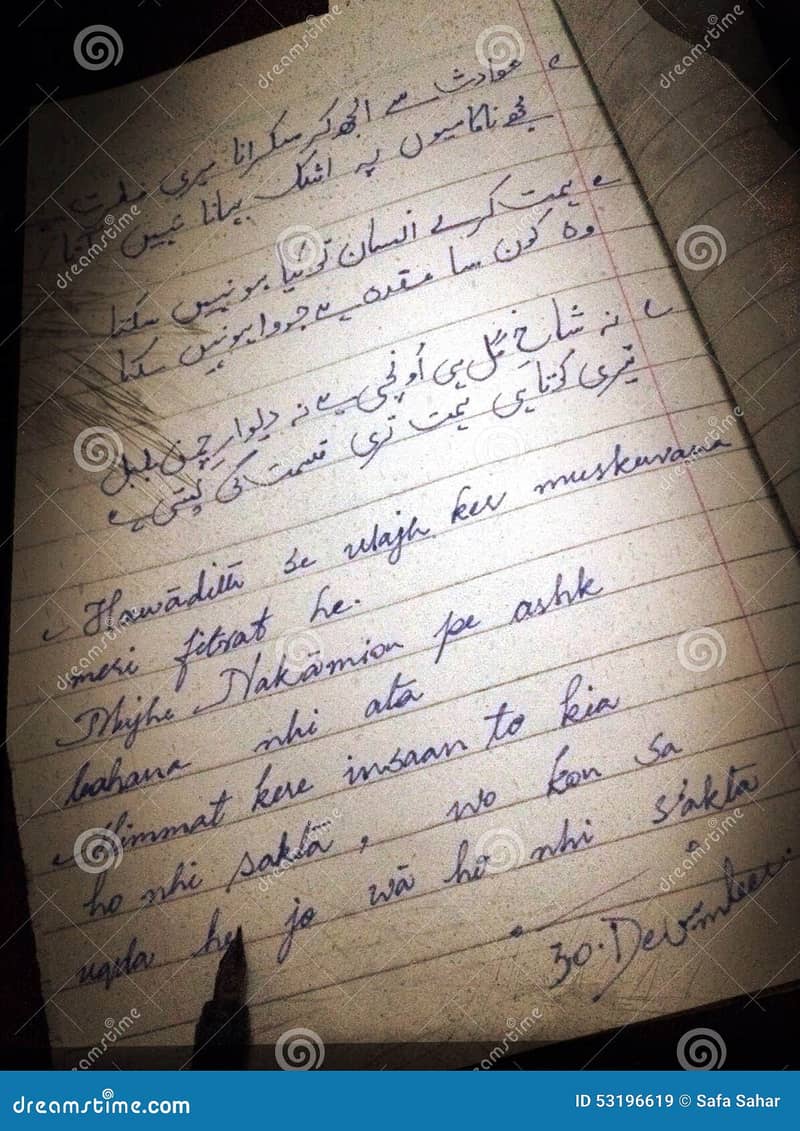 حوادث سے الجھ کر مسکرانا میری فطرت ہے
مجھے ناکامیوں پہ اشک بہانا نہیں آتا
ہمت کرے انسان تو کیا ہو نہیں سکتا
وہ کون سا عقدہ ہے جو وا ہو نہیں سکتا
نہ شاخِ گُل ہی اُونچی ہے نہ دیوارِ چمن بلبل
تیری کوتاہی ہمت تری قسمت کی پستی ہے
Hawādith se ulajh ker muskurana
meri fitrat he.
Mujhe Nakāmion pe ashk
bahana nhi ata
Himmat kere insaan to kia
ho nhi saktā, wo kon sa
uqda he jo wā ho nhi sakta
30. December.
dreamstime.com
ID 53196619 © Safa Sahar